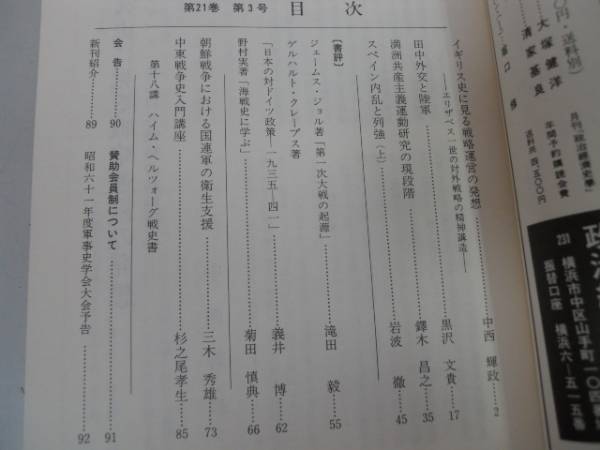 第21巻 第3号 目次
イギリス史に見る戦略運営の発想
――エリザベス一世の対外戦略の精神構造――
中西 輝政 2
田中外交と陸軍 黒沢 文貴 17
満洲共産主義運動研究の現段階 鐸木 昌之 35
スペイン内乱と列強(上) 岩波 徹 45
〔書評〕
ジェームス・ジョル著「第一次大戦の起源」 滝田 毅 55
ゲルハルト・クレープス著
「日本の対ドイツ政策―一九三五―四一」 義井 博 62
野村実著「海戦史に学ぶ」 菊田 慎典 66
朝鮮戦争における国連軍の衛生支援 三木 秀雄 73
中東戦争史入門講座
第十八講 ハイム・ヘルツォーグ戦史書 杉之尾孝生 85
会告 90 賛助会員制について 91
新刊紹介 89 昭和六十一年度軍事史学会大会予告 92
0円・送料別)
大塚健洋
清家基良
月刊「政治経済史学」
年間予約購読会費
送料共 四、五〇〇円
231 横浜市中区山手町一〇四番
振替口座 横浜六―五一五番